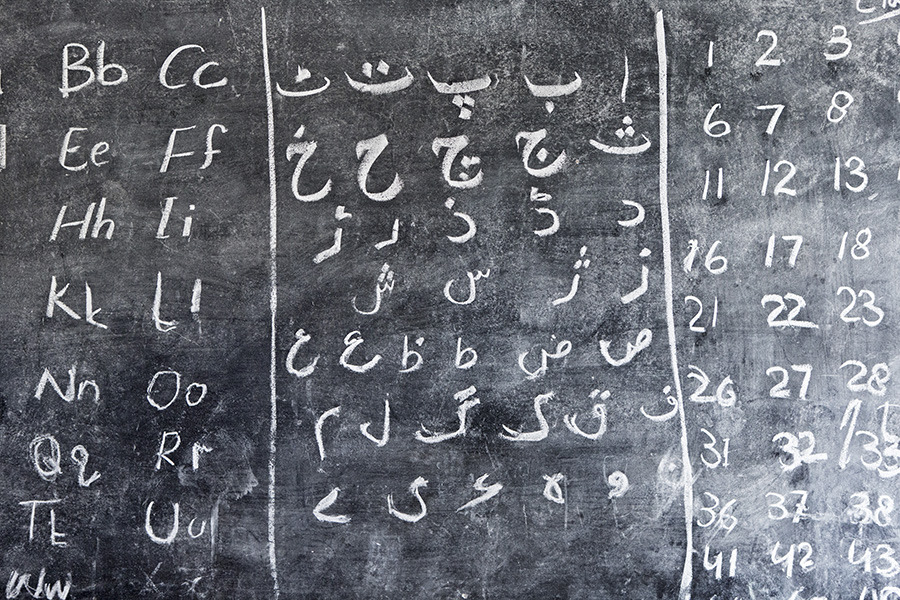 Bb Cc
Ee Ff
Hh Ii
Kk Ll
Nn Oo
Qq Rr
Tt Uu
Ww
ا ب پ ت ٹ
ث ج چ ح خ
د ڈ ذ ر ڑ
ز ژ س ش
ص ض ط ظ ع غ
ف ق ک گ ل م
و ہ ء ی ے
1 2 3
6 7 8
11 12 13
16 17 18
21 22 23
26 27 28
31 32 33
36 37 38
41 42 43